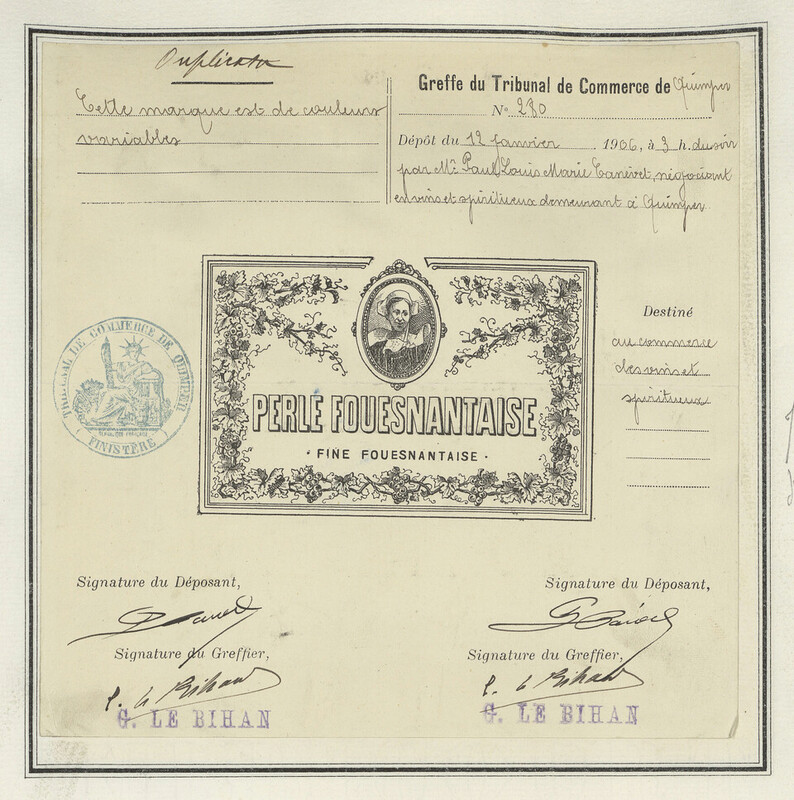 Duplicata
Cette marque est de couleurs
variables
Greffe du Tribunal de Commerce de Quimper
N° 280
Dépôt du 12 Janvier 1906, à 3 h. du soir
par Mr. Paul Louis Marie Canévet, négociant
en vins et spiritueux demeurant à Quimper
TRIBUNAL DE COMMERCE DE QUIMPER
FINISTÈRE
PERLE FOUESNANTAISE
· FINE FOUESNANTAISE ·
Destiné
au commerce
des vins et
spiritueux
Signature du Déposant,
Signature du Déposant,
Signature du Greffier,
Signature du Greffier,
G. Le Bihan
G. Le Bihan
G. LE BIHAN
G. LE BIHAN